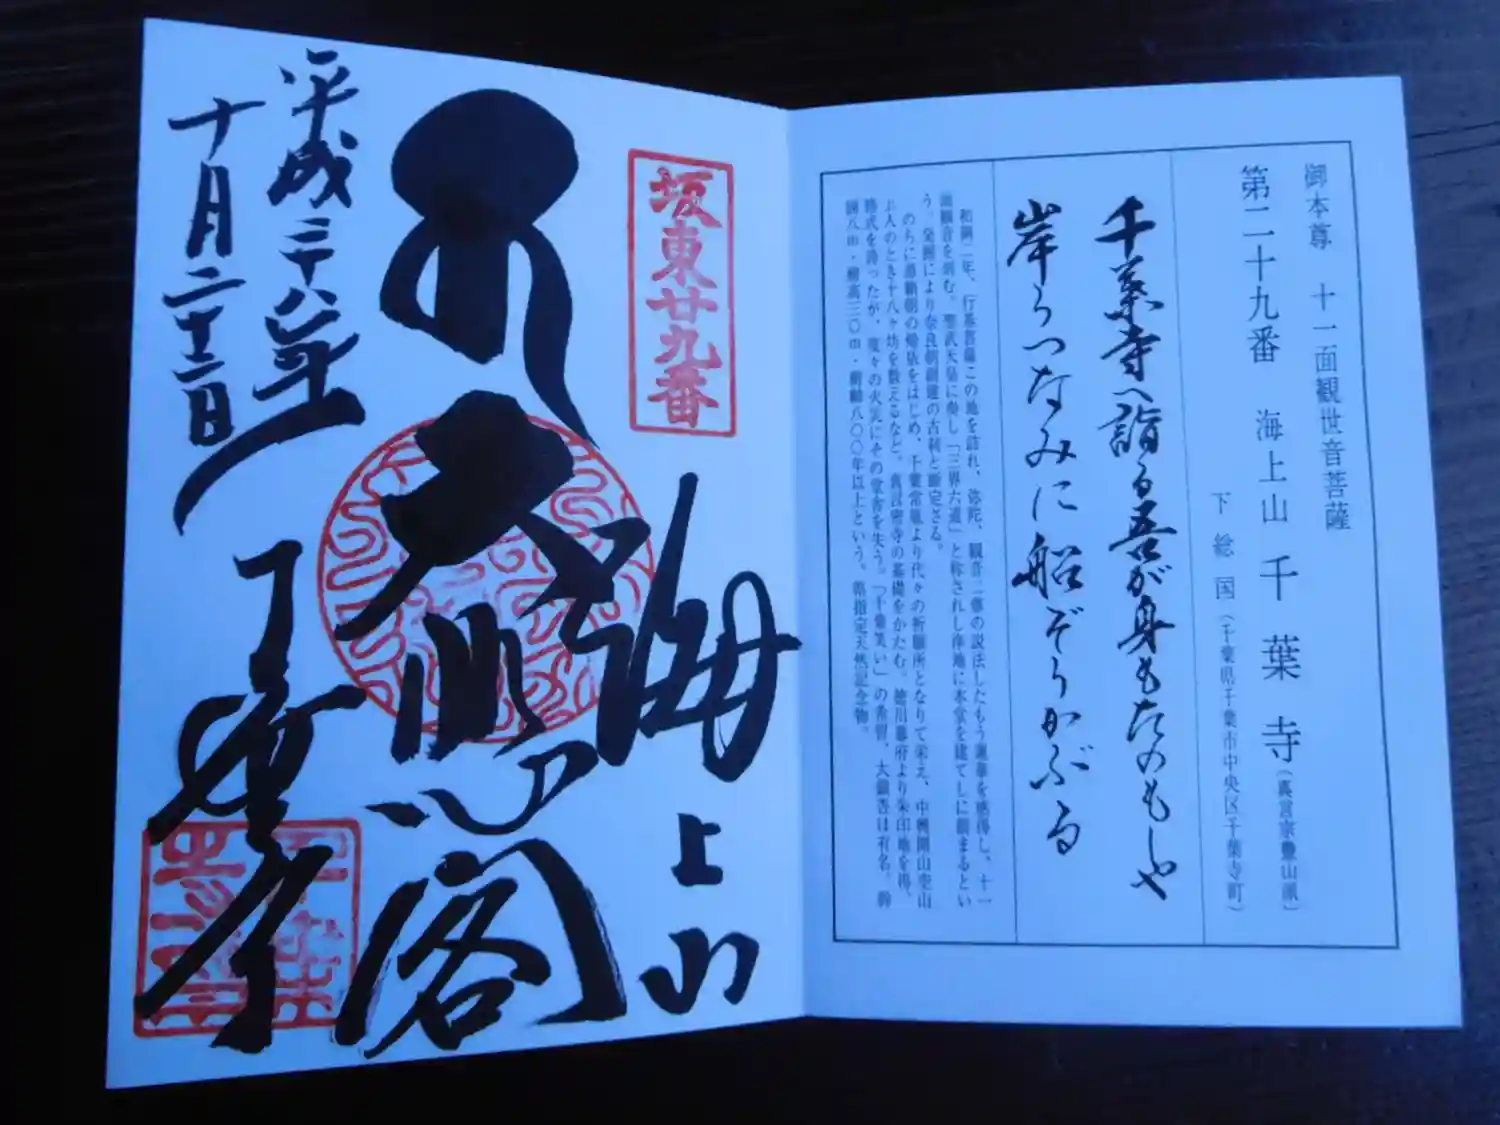 御本尊 十一面観世音菩薩
第二十九番 海上山 千葉寺(真言宗豊山派)
下総国(千葉県千葉市中央区千葉寺町)
千葉寺へ詣る吾が身もたのもしや
岸うつなみに船ぞうかぶる
和銅二年、行基菩薩この地を訪れ、弥陀、観音二尊の説法したもう蓮華を感得し、十一
面観音を刻む。聖武天皇に奏し「三界六道」と称されし浄地に本堂を建てしに始まるとい
う。発掘により奈良朝創建の古刹と断定さる。
のちに源頼朝の帰依をはじめ、千葉常胤より代々の祈願所となりて栄え、中興開山
人のとき十八ヶ坊を数えるなど、真言密寺の基礎をかたむ。徳川幕府より朱印地を得、
格式を誇ったが、度々の火災にその堂舎を失う。「千葉笑い」の奇習、大銀杏は有名。幹
周八m・樹高三〇m・樹齢八〇〇年以上という。県指定天然記念物。
坂東廿九番
海上山
大悲閣
千葉寺
平成二十八年
十月二十二日